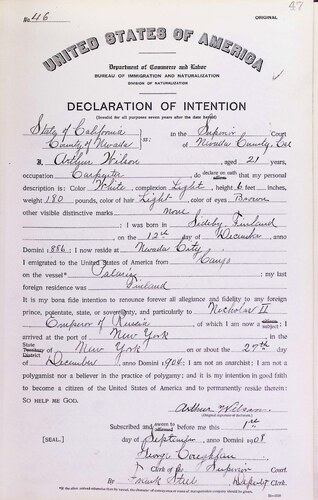 No. 46
ORIGINAL
47
UNITED STATES OF AMERICA
Department of Commerce and Labor
BUREAU OF IMMIGRATION AND NATURALIZATION
DIVISION OF NATURALIZATION
DECLARATION OF INTENTION
(Invalid for all purposes seven years after the date hereof)
State of California
County of Nevada ss:
In the Superior Court
of Nevada County, Cal
I, Arthur Wilson, aged 21 years,
occupation Carpenter, do declare on oath affirm that my personal
description is: Color White, complexion Light, height 6 feet inches,
weight 180 pounds, color of hair Light, color of eyes Brown
other visible distinctive marks None
I was born in Sideby, Finland
on the 12th day of December, anno
Domini 1886; I now reside at Nevada City,
I emigrated to the United States of America from
on the vessel* ; my last
foreign residence was Finland
It is my bona fide intention to renounce forever all allegiance and fidelity to any foreign
prince, potentate, state, or sovereignty, and particularly to Nicholas II
Emperor of Russia, of which I am now a citizen subject; I
arrived at the port of New York, in the
State Territory District of New York on or about the 27th day
of December, anno Domini 1904; I am not an anarchist; I am not a
polygamist nor a believer in the practice of polygamy; and it is my intention in good faith
to become a citizen of the United States of America and to permanently reside therein:
SO HELP ME GOD.
Arthur Wilson
Subscribed and sworn to affirmed before me this 1st
[SEAL.] day of September, anno Domini 1908
George
Clerk of the Superior Court.
By Frank Steel, Deputy Clerk.